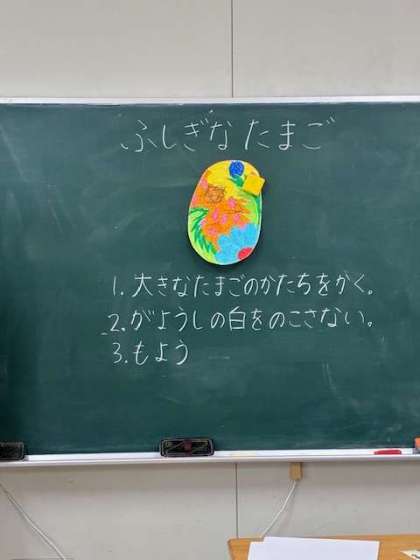 ふしぎなたまご
1. 大きなたまごのかたちをかく。
2. がようしの白をのこさない。
3. もよう